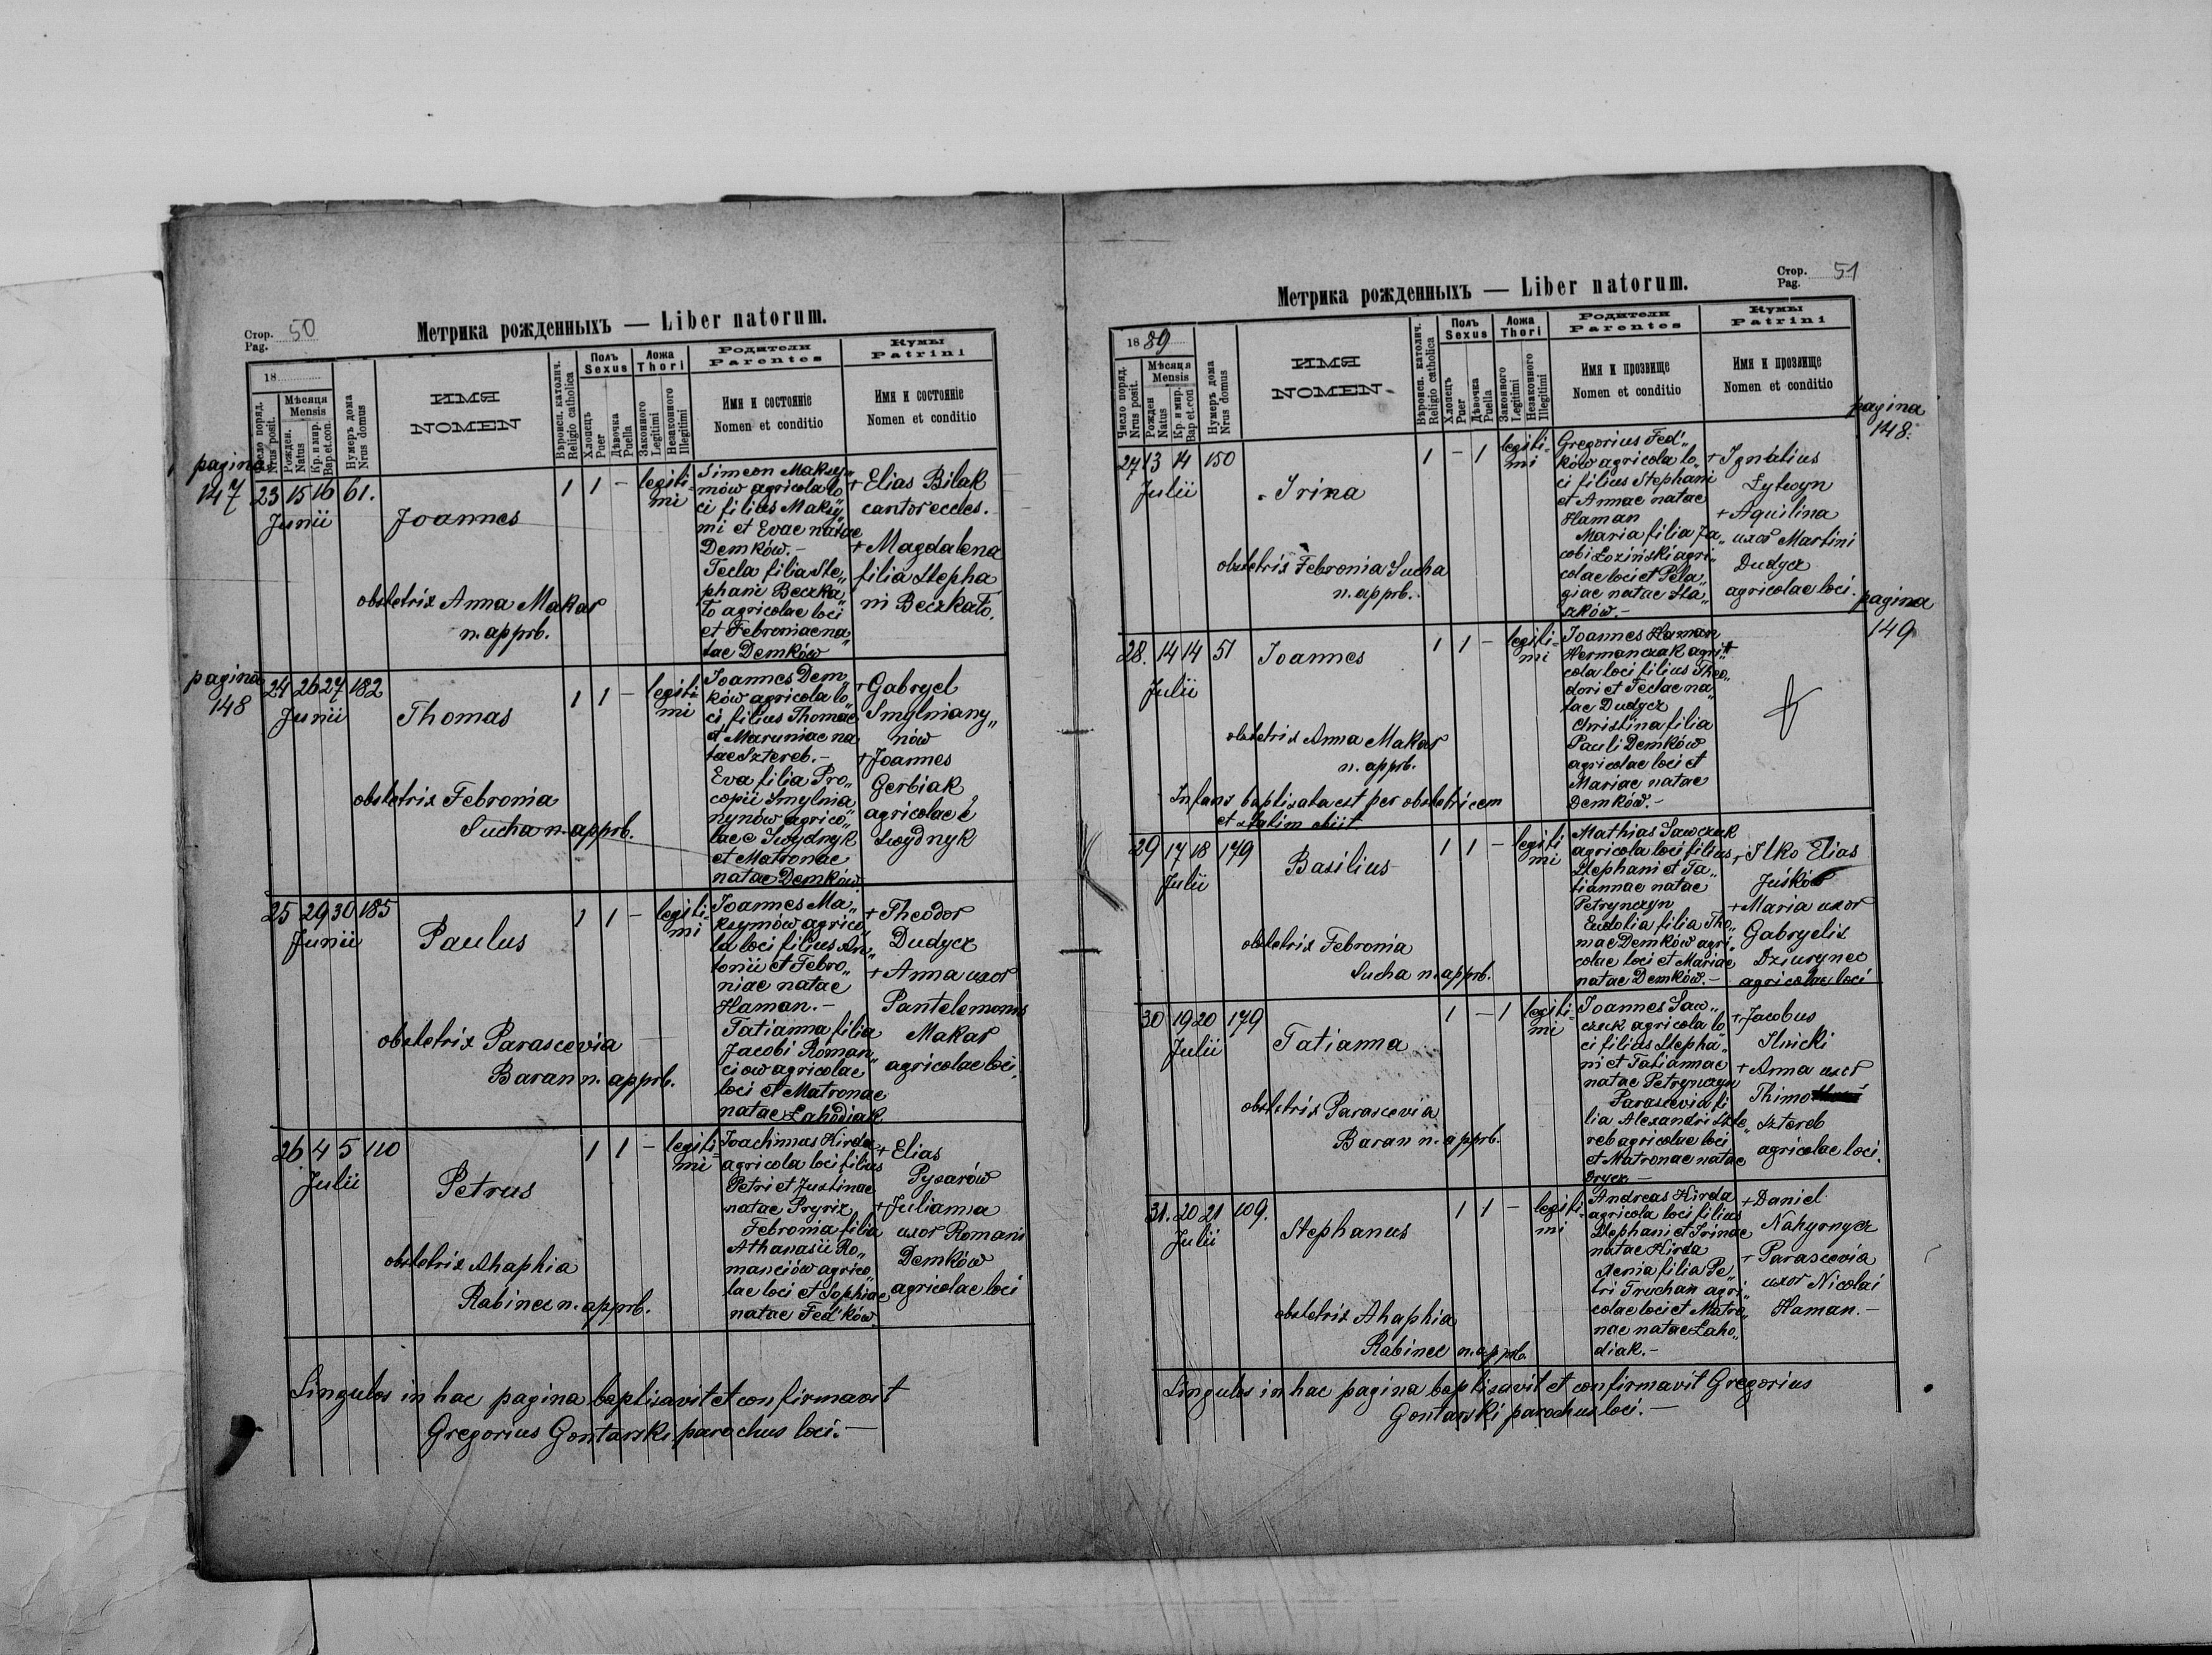 Стор. 50
Pag.
Метрика рожденныхъ — Liber natorum.
18
Число поряд.
Nrus posit.
Мѣсяца
Mensis
Рожден.
Natus
Кр. и мир.
Bap.et.con.
Нумеръ дома
Nrus domus
ИМЯ
NOMEN
Вѣроисп. католич.
Religio catholica
Полъ
Sexus
Хлопецъ
Puer
Дѣвочка
Puella
Ложа
Thori
Законного
Legitimi
Незаконного
Illegitimi
Родители
Parentes
Имя и состояніе
Nomen et conditio
Кумы
Patrini
Имя и состояніе
Nomen et conditio
pagina
147
23 15 16 61.
Junii
Joannes
obstetrix Anna Makar
n. apprb.
1 1 –
legiti-
mi
Simeon Maksy„
mów agricola lo„
ci filius Maksy„
mi et Evae natae
Demków.-
Tecla filia Ste„
phani Beczka„
ło agricolae loci
et Febroniae na„
tae Demków
+ Elias Bilak
cantor eccles.
+ Magdalena
filia Stepha
ni Beczkało.
pagina
148
24 26 27 182
Junii
Thomas
obstetrix Febronia
Sucha n. apprb.
1 1 –
legiti-
mi
Joannes Dem„
ków agricola lo„
ci filius Thomae
et Maruniae na
tae Sztereb.-
Eva filia Pro„
copii Smylnia
nynów agrico„
lae e Swydnyk
et Matronae
natae Demków
+ Gabryel
Smylniany„
nów
+ Joannes
Gerbiak
agricolae e
Swydnyk
25 29 30 185
Junii
Paulus
obstetrix Parascevia
Baran n. apprb.
1 1 –
legiti-
mi
Joannes Ma„
ksymów agrico„
la loci filius An„
tonii et Febro„
niae natae
Haman.-
Tatianna filia
Jacobi Roman„
ciow agricolae
loci et Matronae
natae Łahodiak
+ Theodor
Dudycz
+ Anna uxor
Pantelemonis
Makar
agricolae loci.
26 4 5 110
Julii
Petrus
obstetrix Ahaphia
Rabinec n. apprb.
1 1 –
legiti-
mi
Joachimus Hirda
agricola loci filius
Petri et Justinae
natae Pryriz
Febronia filia
Athanasii Ro„
manciów agrico„
lae loci et Sophiae
natae Fed'ków.
+ Elias
Pysarów
+ Julianna
uxor Romani
Demków
agricolae loci
Singulos in hac pagina baptisavit et confirmavit
Gregorius Gontarski parochus loci.—
Стор. 51
Pag.
Метрика рожденныхъ — Liber natorum.
1889
Число поряд.
Nrus posit.
Мѣсяца
Mensis
Рожден
Natus
Кр. и мир.
Bap et.con
Нумеръ дома
Nrus domus
ИМЯ
NOMEN-
Вѣроисп. католич.
Religio catholica
Полъ
Sexus
Хлопецъ
Puer
Дѣвочка
Puella
Ложа
Thori
Законного
Legitimi
Незаконного
Illegitimi
Родители
Parentes
Имя и прозвище
Nomen et conditio
Кумы
Patrini
Имя и прозвище
Nomen et conditio
pagina
148.
27 13 14 150
Julii
Irina
obstetrix Febronia Sucha
n. apprb.
1 – 1
legiti-
mi
Gregorius Fed'„
ków agricola lo„
ci filius Stephani
et Annae natae
Haman
Maria filia Ja„
cobi Łoziński agri„
colae loci et Pela„
giae natae Sta„
szków.-
+ Ignatius
Lytwyn
+ Aquilina
uxor Martini
Dudycz
agricolae loci.
pagina
149
28. 14 14 51
Julii
Joannes
obstetrix Anna Makar
n. apprb.
Infans baptisata est per obstetricem
et statim obiit
1 1 –
legiti-
mi
Joannes Haman
Hermanczak agri„
cola loci filius Theo„
dori et Teclae na„
tae Dudycz
Christina filia
Pauli Demków
agricolae loci et
Mariae natae
Demków.-
29 17 18 179
Julii
Basilius
obstetrix Febronia
Sucha n. apprb.
1 1 –
legiti
mi
Mathias Sawczuk
agricola loci filius
Stephani et Ta„
tiannae natae
Petrynczyn
Eudolia filia Tho„
mae Demków agri„
colae loci et Mariae
natae Demków.-
+ Ilko Elias
Juśków
+ Maria uxor
Gabryelis
Dziurynec
agricolae loci
30 19 20 179
Julii
Tatianna
obstetrix Parascevia
Baran n. apprb.
1 – 1
legiti-
mi
Joannes Saw„
czuk agricola lo
ci filius Stepha„
ni et Tatiannae
natae Petrynczyn
Parascevia fi
lia Alexandri Szte„
reb agricolae loci
et Matronae natae
Drycz —
+ Jacobus
Ilnicki
+ Anna uxor
Thimo
Sztereb
agricolae loci.
31. 20 21 109.
Julii
Stephanus
obstetrix Ahaphia
Rabinec n. apprb.
1 1 –
legiti-
mi
Andreas Hirda
agricola loci filius
Stephani et Irinae
natae Hirda
Xenia filia Pe„
tri Truchan agri„
colae loci et Matro„
nae natae Łaho„
diak.-
+ Daniel
Nahyrnycz
+ Parascevia
uxor Nicolai
Haman.—
Singulos in hac pagina baptisavit et confirmavit Gregorius
Gontarski parochus loci.—